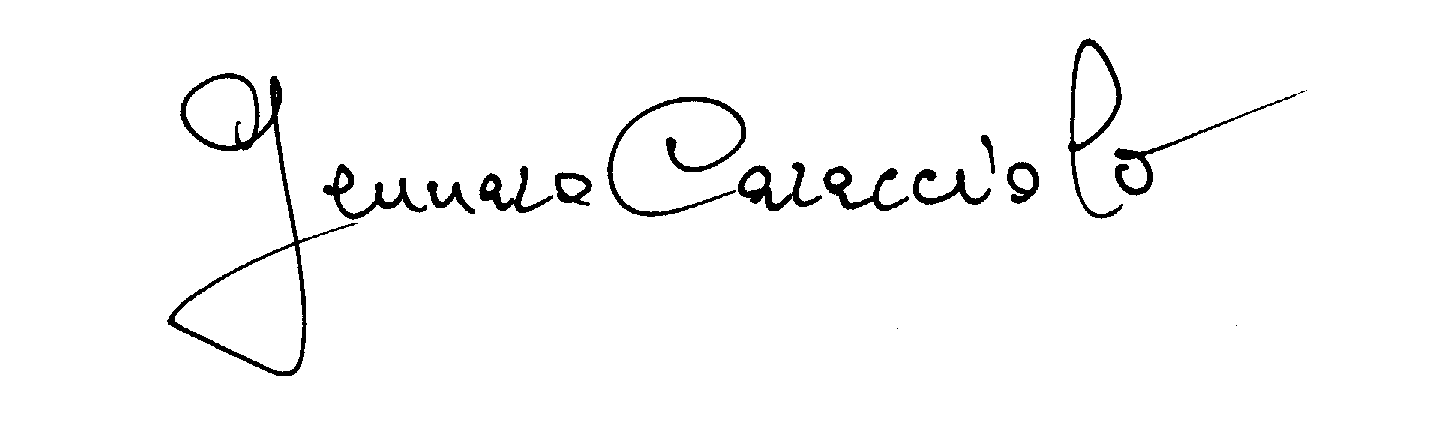 Gennaro Caracciolo